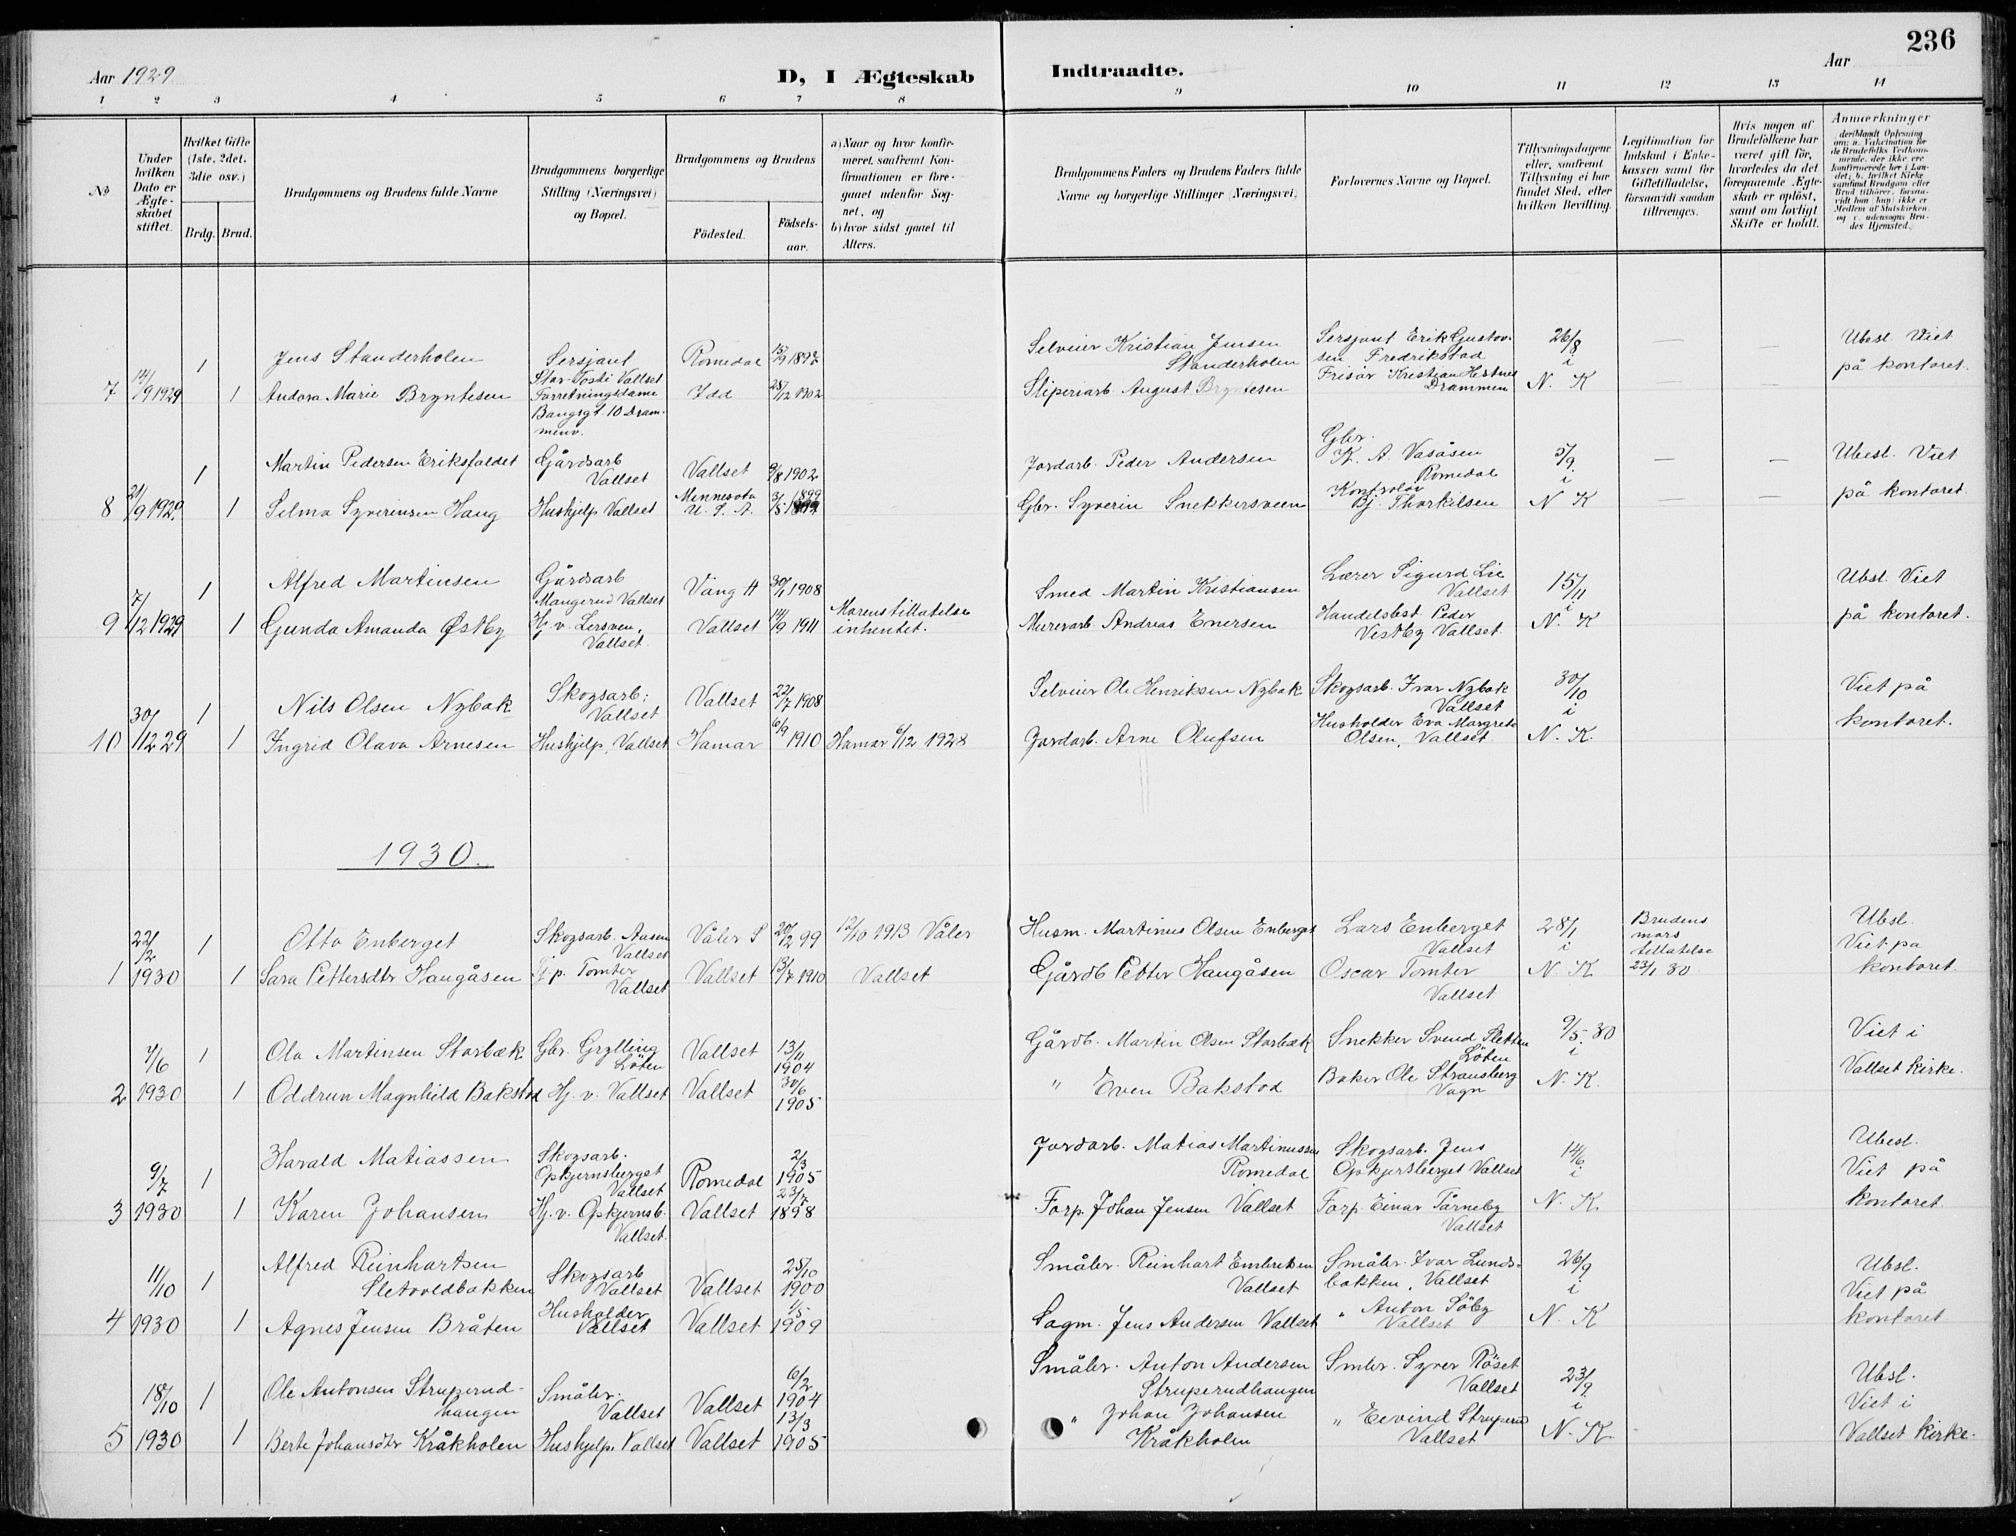 236
Aar 1929
D, I Ægteskab
Indtraadte.
Aar
1 2 3 4 5 6 7 8 9 10 11 12 13 14
No
Under hvilken Dato er Ægteskabet stiftet.
Hvilket Gifte (1ste, 2det, 3die osv.)
Brdg. Brud.
Brudgommens og Brudens fulde Navne
Brudgommens borgerlige Stilling (Næringsvei) og Bopæl.
Brudgommens og Brudens
Födested.
Födselsaar.
a) Naar og hvor konfirmeret, saafremt Konfirmationen er foregaaet udenfor Sognet, og
b) hvor sidst gaaet til Alters.
Brudgommens Faders og Brudens Faders fulde Navne og borgerlige Stillinger (Næringsvei).
Forlovernes Navne og Bopæl.
Tillysningsdagene eller, saafremt Tillysning ei har fundet Sted, efter hvilken Bevilling.
Legitimation for Indskud i Enkekassen samt for Giftetilladelse, forsaavidt saadan tiltrænges.
Hvis nogen af Brudefolkene har været gift för, hvorledes da det foregaaende Ægteskab er oplöst, samt om lovligt Skifte er holdt.
Anmerkninger
7 14/9 1929 1 Jens Standerholen Sersjant Stor-Tosti Vallset Romedal 15/9 1897 Selveier Kristian Jensen Standerholen Sersjant Erik Gustovsen Fredrikstad 26/8 i — — Ubsl. Viet
1 Andora Marie Bryntesen Forretningsdame Bangsgt. 10 Drammenv. Idd 28/12 1902 Sliperiarb. August Bryntesen Frisør Kristian Hestnes Drammen N. K — — på kontoret.
8 21/9 1929. 1 Martin Pedersen Eriksfaldet Gårdsarb Vallset Vallset 9/8 1902 Jordarb. Peder Andersen Gbr. K. A. Vasåsen Romedal 5/9. i — — Ubesl. Viet
1 Selma Syverinsen Haug Hushjelp Vallset Minnesota U. S. A. 3/5 1899 Gbr. Syverin Snekkersveen Kontrolør Bj. Thorkilsen N K — — på kontoret.
9 7/12 1929 1 Alfred Martinsen Gårdsarb Mangerud Vallset Vang H 30/11 1908 Smed Martin Kristiansen Lærer Sigurd Lie Vallset 15/11 i Ubsl. Viet
1 Gunda Amanda Østby Hj. v. Lersven, Vallset. Vallset 14/9 1911 Morens tillatelse inhentet. Murerarb Andreas Enersen Handelsbst Peder Vestby Vallset. N. K på kontoret.
10 30/12 29 1 Nils Olsen Nybak Skogsarb: Vallset Vallset 22/7 1908 Selveier Ole Henriksen Nybak Skogsarb. Ivar Nybak Vallset 30/10 i Viet på
1 Ingrid Olava Arnesen Hushjelp, Vallset Hamar 6/9 1910 Hamar 6/12 1928 Jordarb. Arne Olufsen Husholder Eva Margrete Olsen, Vallset N. K. kontoret.
1930.
1 22/2 1930 1 Otto Enberget Skogsarb. Aasen Vallset Våler S 20/12 99 12/10 1913 Våler Husm. Martinus Olsen Enberget Lars Enberget Vallset 28/1 i Brudens mors tillatelse 23/1 30 Ubsl. Viet på
1 Sara Pettersdtr Haugåsen Tj p. Tomter Vallset Vallset 13/7 1910 Vallset Gårdb Petter Haugåsen Oscar Tomter Vallset N. K kontoret.
2 7/6 1930 1 Ola Martinsen Storbæk Gbr. Grylling Löten Vallset 13/11 1904 Gårdb. Martin Olsen Storbæk Snekker Svend Sletten Löten 9/5 30 i Viet i
1 Oddrun Magnhild Bakstad Hj. v. Vallset Vallset 30/6 1905 " Even Bakstad Baker Ole Stransberg Vagn N. K. Vallset kirke.
3 9/7 1930 1 Harald Matiassen Skogsarb. Opkjernsberget Vallset Romedal 2/3 1905 Jordarb. Matias Martinussen Romedal Skogsarb. Jens Opkjersberget Vallset 14/6 i Ubesl. Viet på
1 Karen Johansen Hj. v. Opkjernsb. Vallset. Vallset 23/7 1898 Forp. Johan Jensen Vallset Forp. Einar Tårneby Vallset N. K. kontoret
4 11/10 1930 1 Alfred Reinhartsen Sletvoldbakken Skogsarb Vallset Vallset 25/10 1900 Småbr. Reinhart Embretsen Vallset Småbr. Ivar Lundsbakken, Vallset 26/9 i Ubsl. Viet på
1 Agnes Jensen Bråten Husholder Vallset Vallset 1/5 1909 Sagm. Jens Andersen Vallset " Anton Söby Vallset N. K kontoret
5 18/10 1930 1 Ole Antonsen Struperudhaugen Småbr. Vallset Vallset 6/2 1904 Småbr. Anton Andersen Struperudhaugen Smbr. Syver Röset Vallset 23/9 i Ubsl. Viet i
1 Berte Johansdtr Kråkholen Hushjelp, Vallset Vallset 13/3 1905 " Johan Johansen Kråkholen " Eivind Struperud Vallset N. K. Vallset kirke.